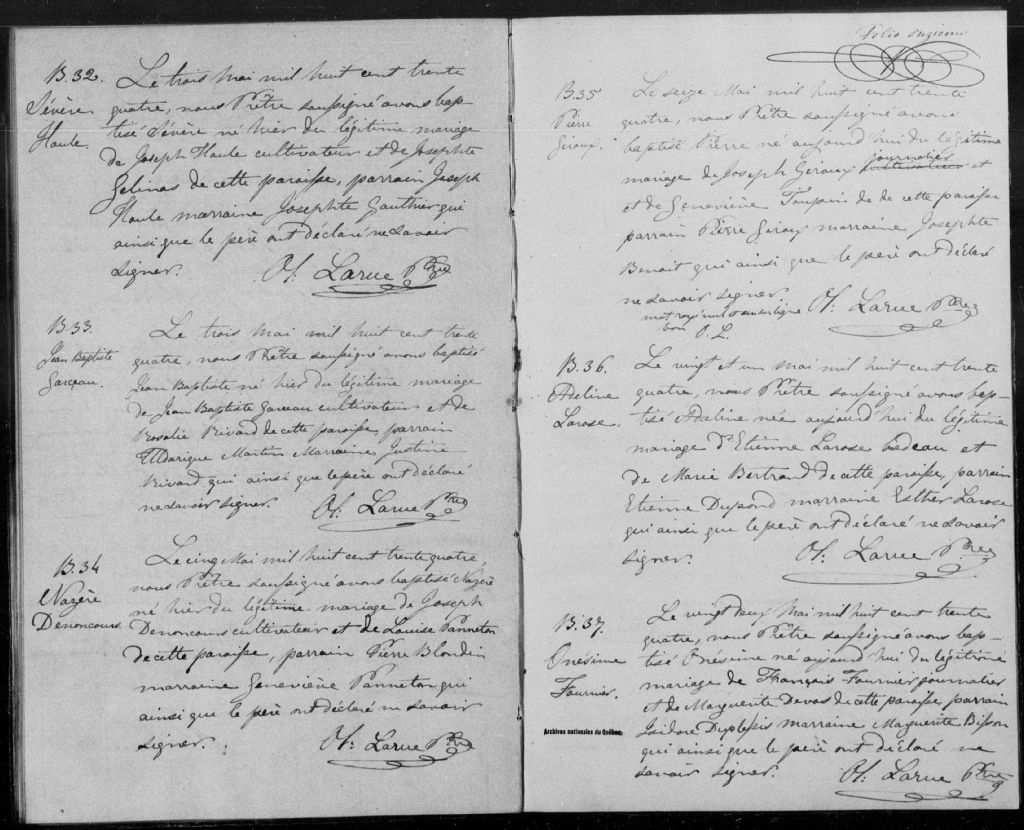 B.32.
Sévère
Houle.
Le trois Mai mil huit cent trente
quatre, nous Prêtre soussigné avons bap-
tisé Sévère né hier du légitime mariage
de Joseph Houle cultivateur et de Josephte
Gelinas de cette paroisse, parrain Joseph
Houle marraine Josephte Gauthier qui
ainsi que le père ont déclaré ne savoir
signer. Ol: Larue Ptre
B.33.
Jean Baptiste
Garceau.
Le trois Mai mil huit cent trente
quatre, nous Prêtre soussigné avons baptisé
Jean Baptiste né hier du légitime mariage
de Jean Baptiste Garceau cultivateur et de
Rosalie Rivard de cette paroisse, parrain
Martin Marraine Justine
Rivard qui ainsi que le père ont déclaré
ne savoir signer. Ol: Larue Ptre
B.34
Nazère
Denoncours
Le cinq Mai mil huit cent trente quatre,
nous Prêtre soussigné avons baptisé Nazère
né hier du légitime mariage de Joseph
Denoncours cultivateur et de Louise Panneton
de cette paroisse, parrain Pierre Blondin
marraine Geneviève Panneton qui
ainsi que le père ont déclaré ne savoir
signer. Ol: Larue Ptre
Folio onzieme
B.35
Pierre
Giroux.
Le seize Mai mil huit cent trente
quatre, nous Prêtre soussigné avons
baptisé Pierre né aujourd'hui du légitime
mariage de Joseph Giroux cultivateur et
journalier
et de Geneviève Toupin de de cette paroisse
parrain Pierre Giroux marraine Josephte
Benoit qui ainsi que le père ont déclaré
ne savoir signer. Ol: Larue Ptre
mot rayé nul
bon O. L.
B.36.
Adeline
Larose.
Le vingt et un Mai mil huit cent trente
quatre, nous Prêtre soussigné avons bap-
tisé Adeline née aujourd'hui du légitime
mariage d'Etienne Larose bedeau et
de Marie Bertrand de cette paroisse, parrain
Etienne Dupond marraine Esther Larose
qui ainsi que le père ont déclaré ne savoir
signer. Ol: Larue Ptre
B.37.
Onésime
Fournier.
Le vingt deux Mai mil huit cent trente
quatre, nous Prêtre soussigné avons bap-
tisé Onésime né aujourd'hui du légitime
mariage de François Fournier journalier
et de Marguerite Devos de cette paroisse, parrain
Isidore Duplessis marraine Marguerite Bisson
qui ainsi que le père ont déclaré ne
savoir signer. Ol: Larue Ptre
Archives nationales du Québec